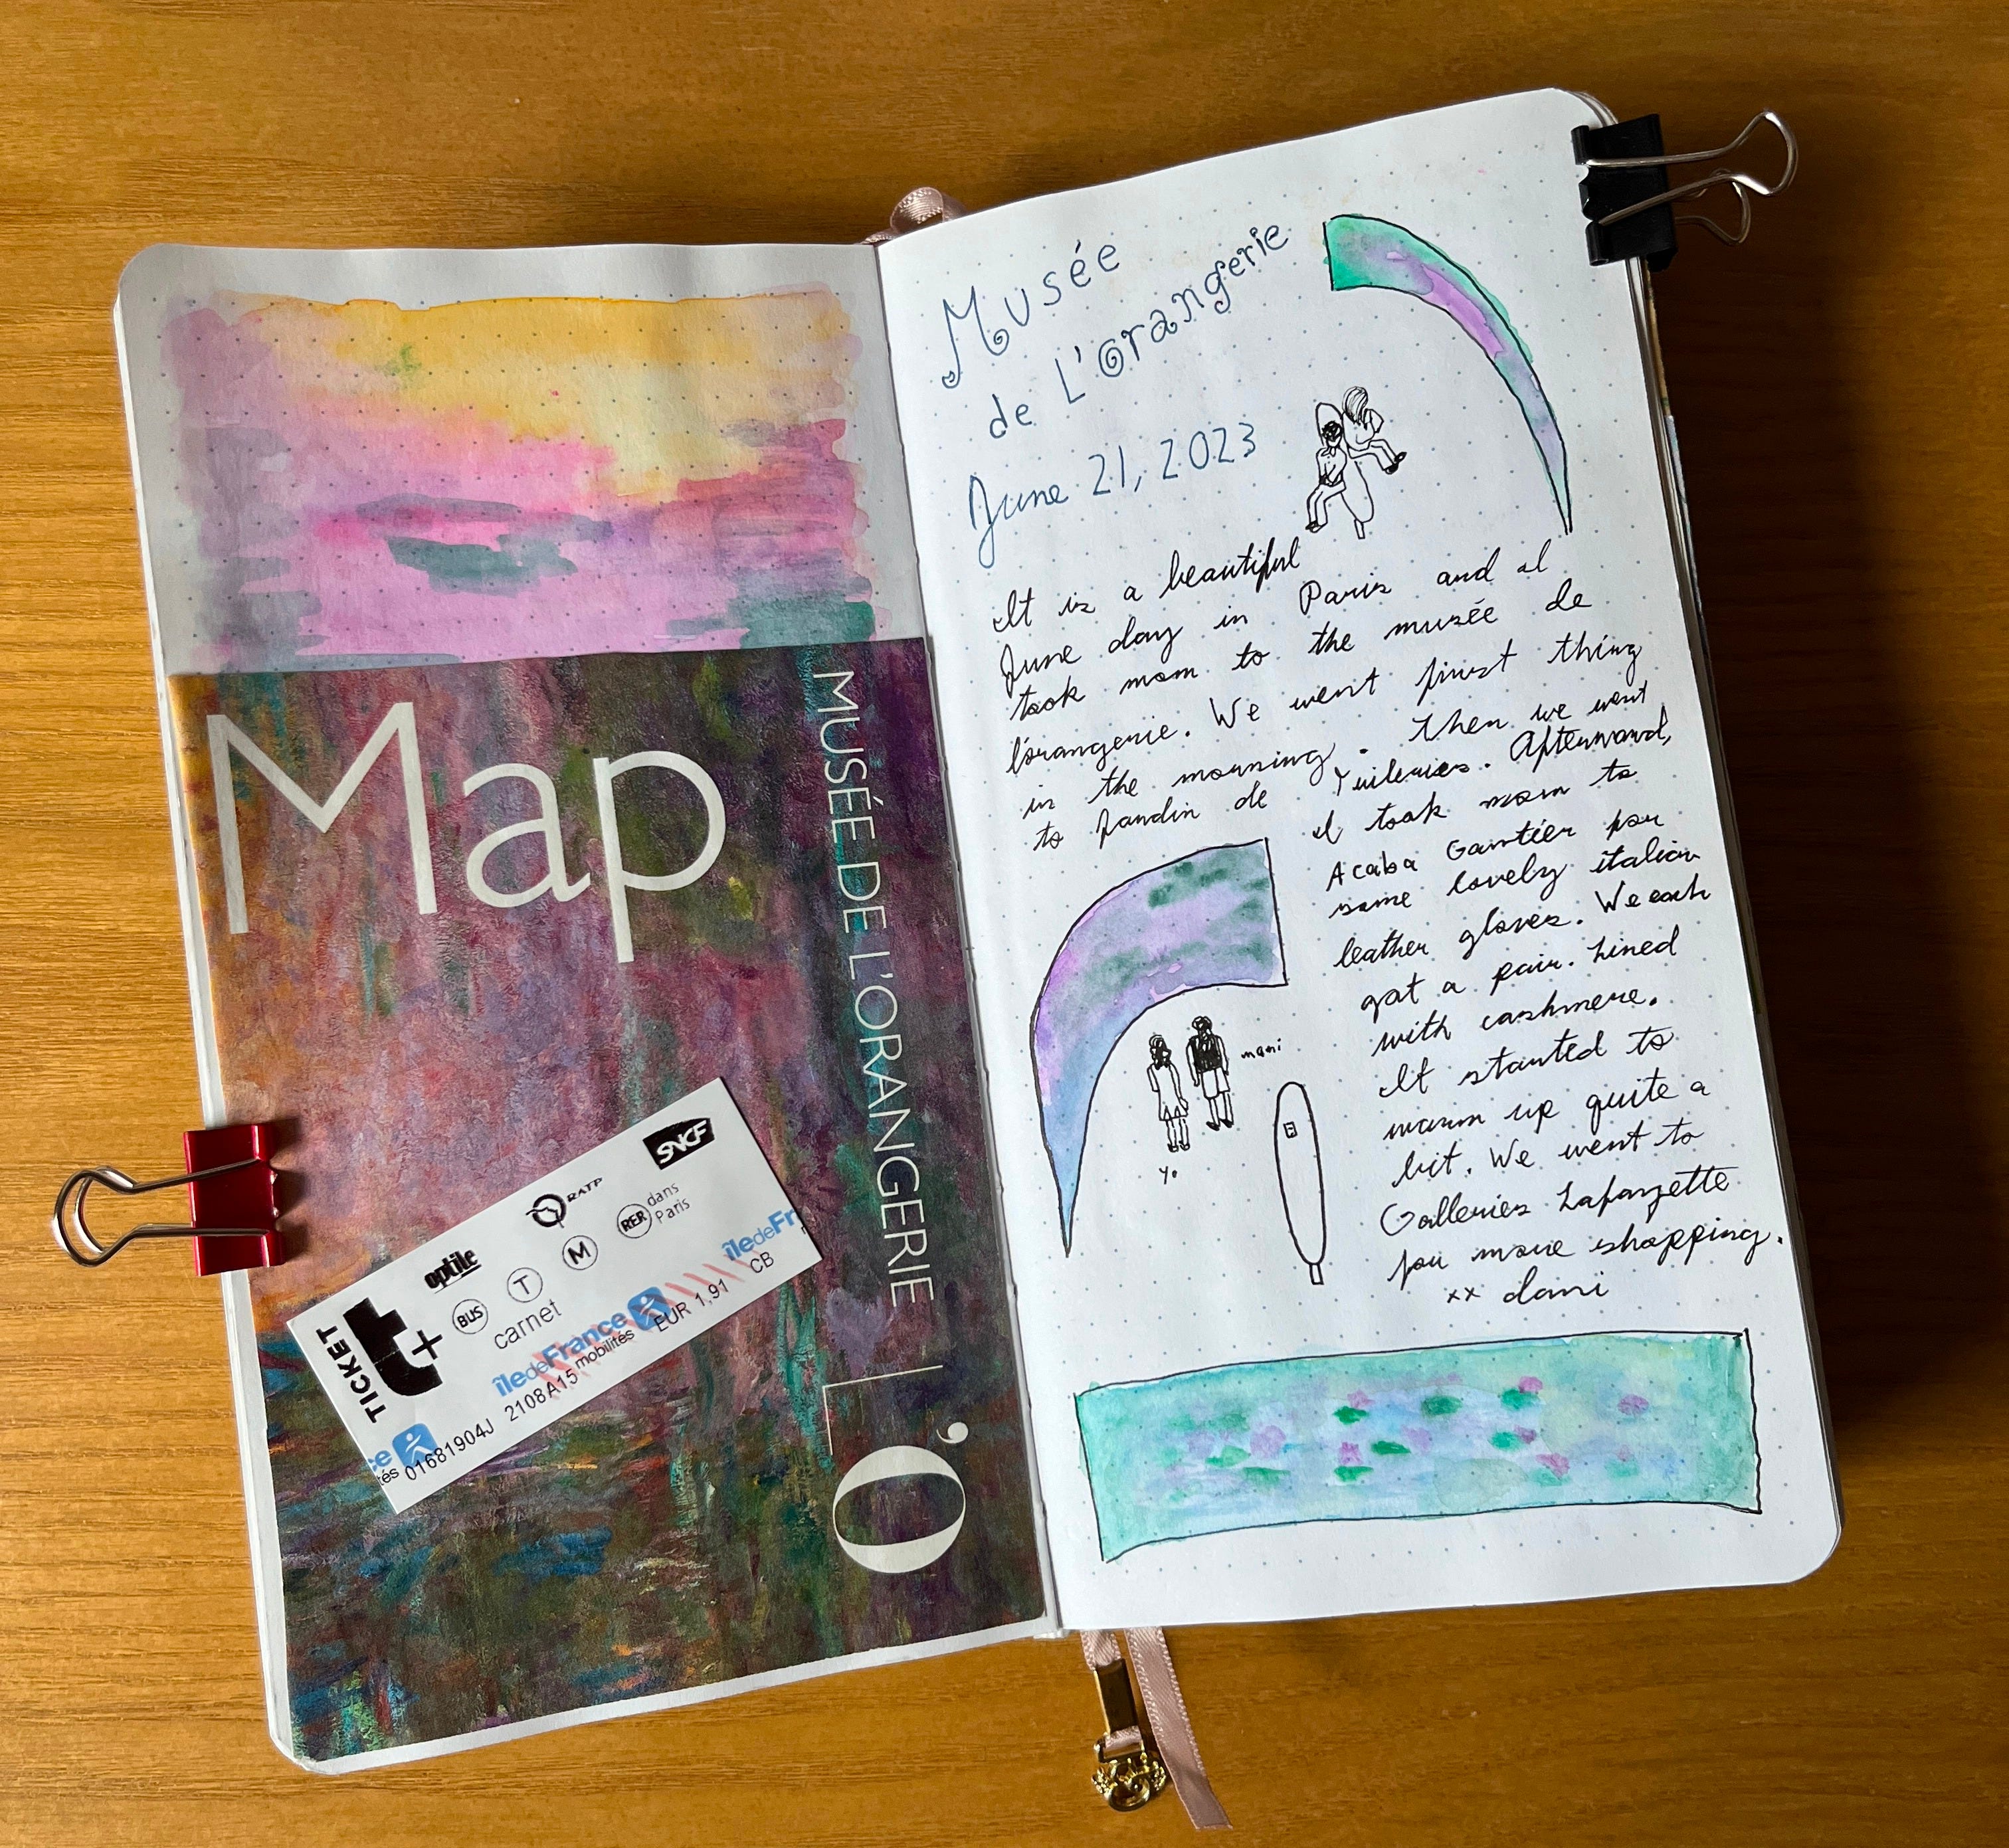 Map
MUSÉE DE L'ORANGERIE
L'O
TICKET
t+
optile
RATP
SNCF
BUS
T
M
RER
dans
Paris
carnet
île de France
mobilités
île de Fr
EUR 1,91
CB
ce
tés
01681904J
2108A15
Musée
de L'orangerie
June 21, 2023
It is a beautiful
June day in Paris and I
took mom to the musée de
l'orangerie. We went first thing
in the morning. Then we went
to Jardin de Tuileries. Afterward,
I took mom to
Acaba Gantier for
some lovely italian
leather gloves. We each
got a pair. Lined
with cashmere.
It started to
warm up quite a
bit. We went to
Galleries Lafayette
for more shopping.
xx dani
mami
yo